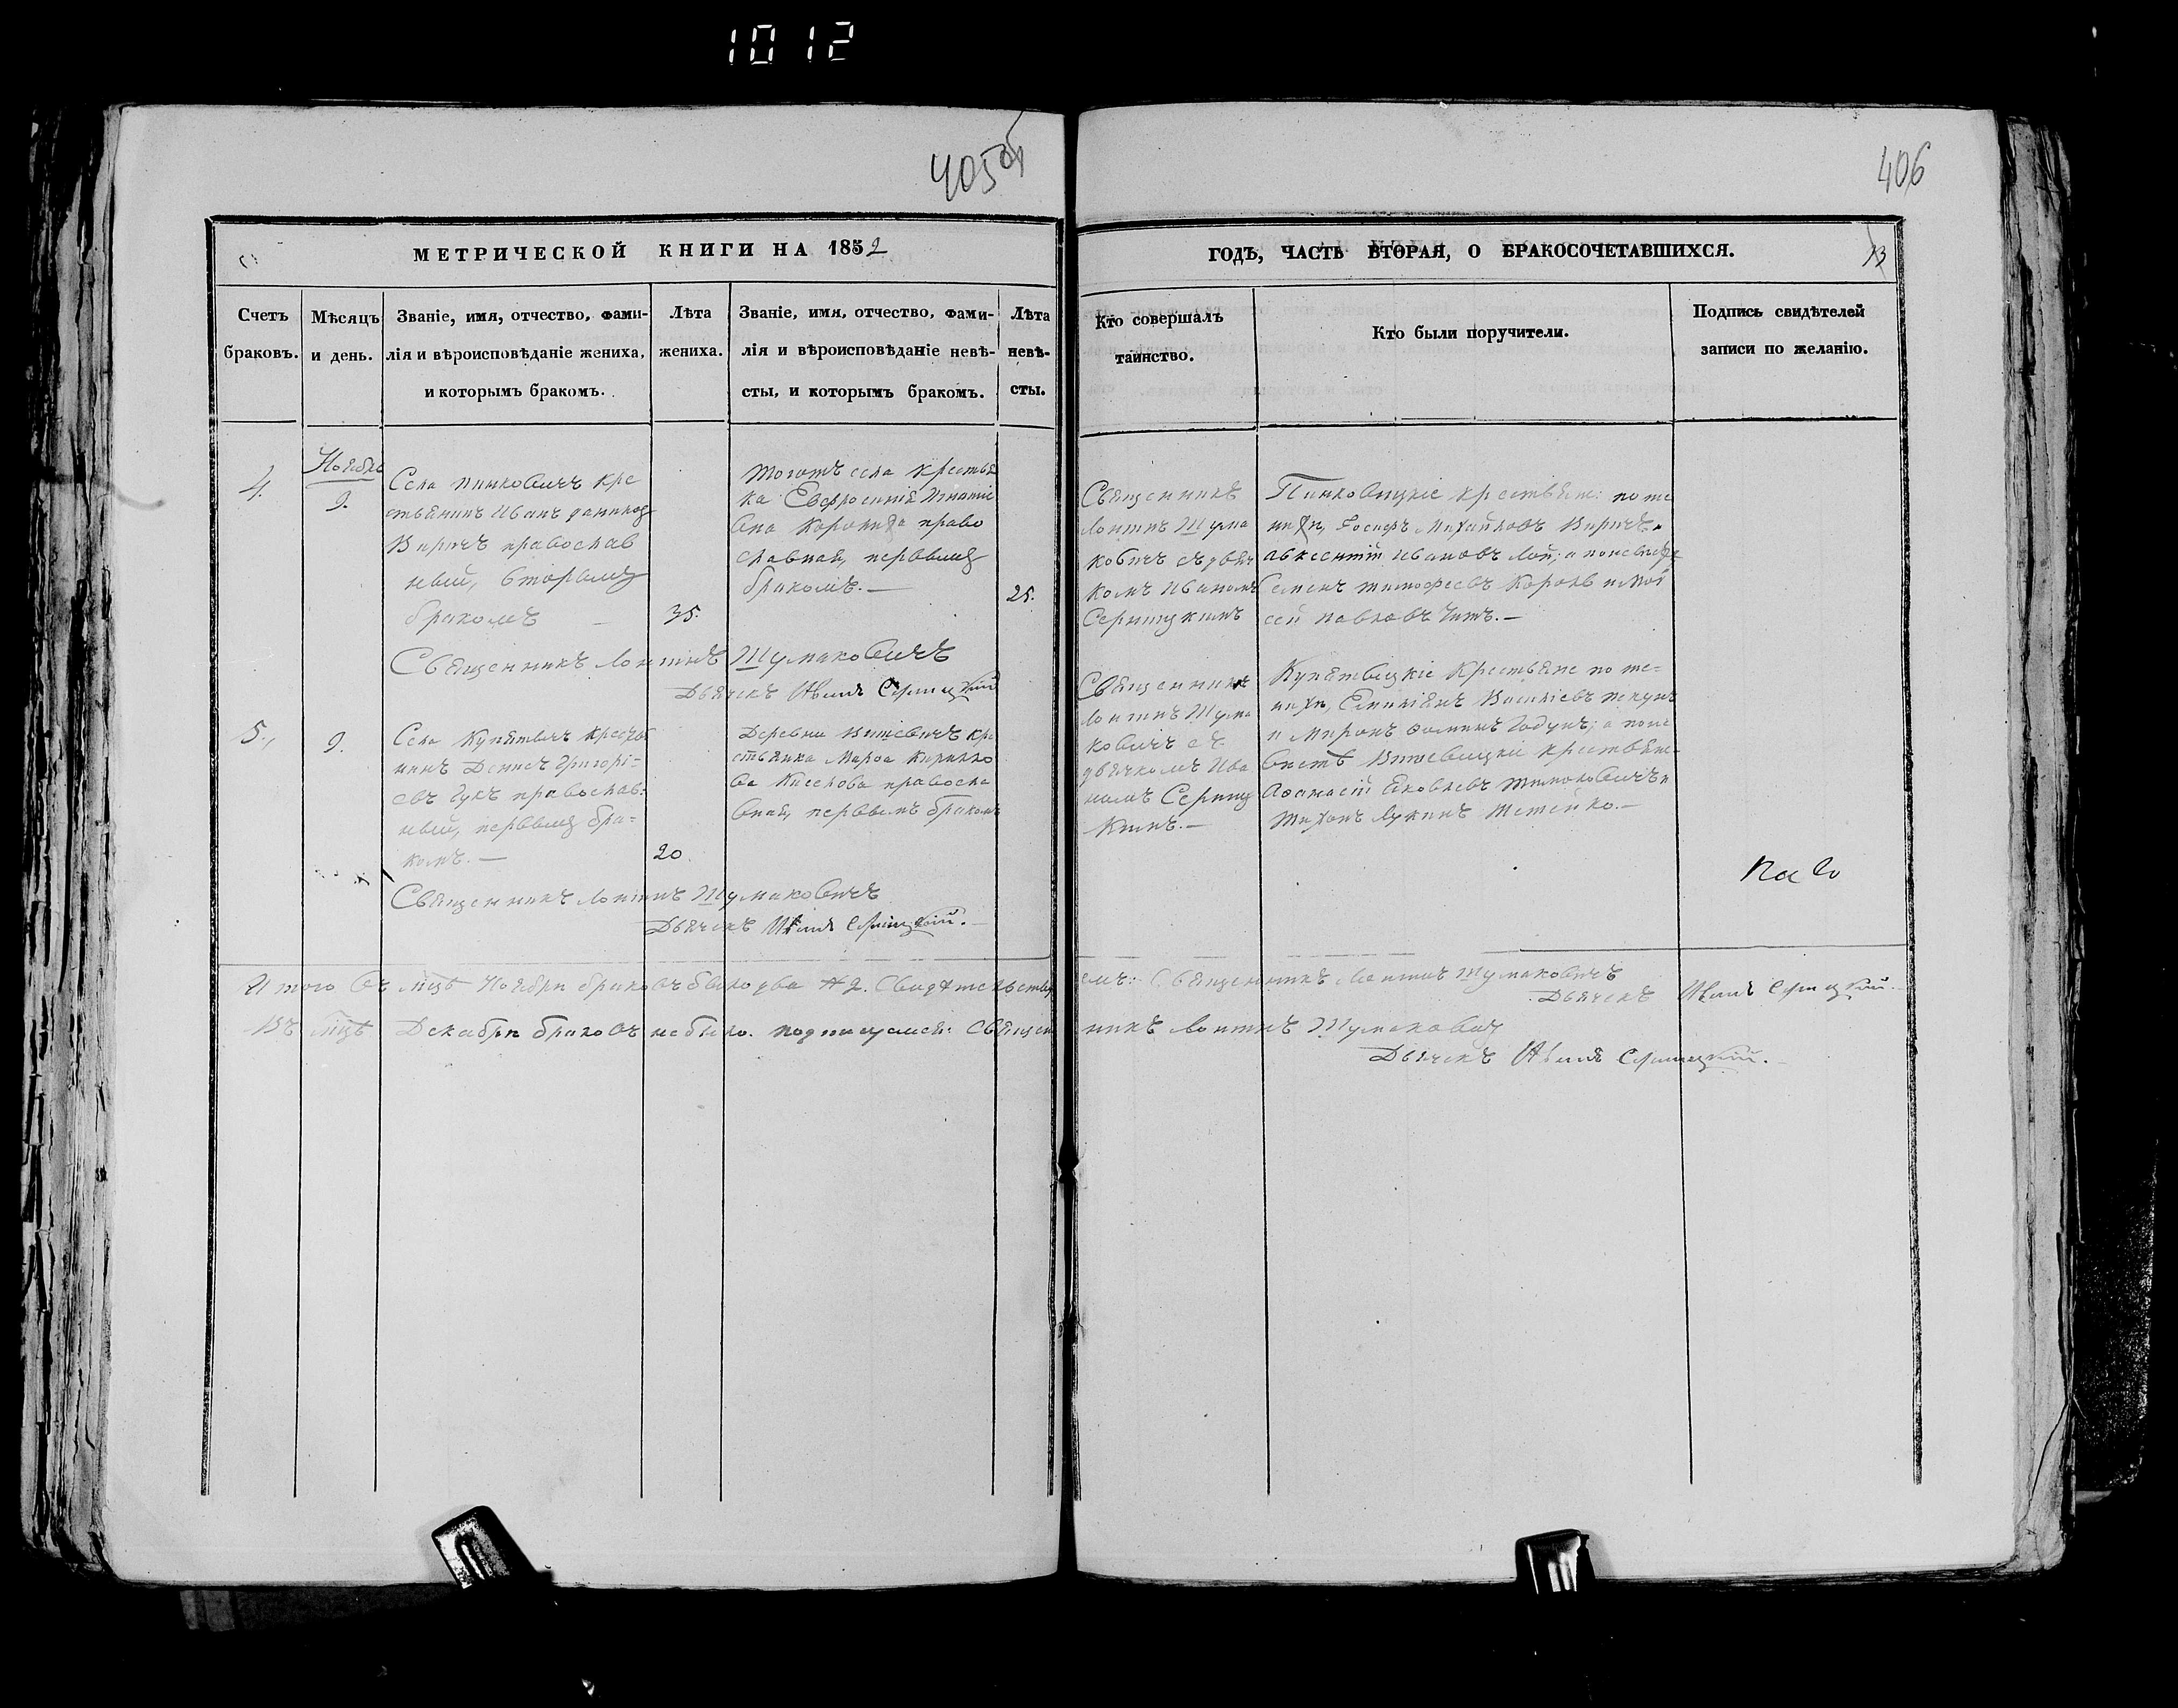 1012
405 об
406
МЕТРИЧЕСКОЙ КНИГИ НА 1852
ГОДЪ, ЧАСТЬ ВТОРАЯ, О БРАКОСОЧЕТАВШИХСЯ.
Счетъ
браковъ.
Мѣсяцъ
и день.
Званіе, имя, отчество, фами-
лія и вѣроисповѣданіе жениха,
и которымъ бракомъ.
Лѣта
жениха.
Званіе, имя, отчество, фами-
лія и вѣроисповѣданіе невѣ-
сты, и которымъ бракомъ.
Лѣта
невѣ-
сты.
Кто совершалъ
таинство.
Кто были поручители.
Подпись свидѣтелей
записи по желанію.
4.
Ноября
9.
Села Пинковичъ кре
стьянинъ Иванъ
Виричъ православ
ный, вторымъ
бракомъ
35.
Тогожъ села крестья
ка Евфросинія Игнатіе
вна право
славная, первымъ
бракомъ. —
25.
Священникъ
Лонгинъ Шума
ковичъ съ дьяч
комъ Иваномъ
Серницкимъ
Пинковицкіе крестьяне: по же
нихѣ, Іосифъ Михайловъ Виричъ и
Авксентій Ивановъ Лой; а по невѣстѣ
Семенъ Тимофеевъ Король и Мой
сей Павловъ Читъ. —
Священникъ Лонгинъ Шумаковичъ
Дьячекъ Иванъ Серницкій
5.
9.
Села Купятичъ крестья
нинъ Денисъ Григорі-
евъ Гукъ православ-
ный, первымъ бра-
комъ. —
20.
Деревни Вишевичъ кре
стьянка Марѳа Кирилло
ва православ
вная, первымъ бракомъ
Священникъ
Лонгинъ Шума
ковичъ съ
дьячкомъ Ива
номъ Серниц
кимъ. —
Купятицкіе крестьяне по же-
нихѣ, Емиліянъ Василіевъ
и Миронъ Ѳоминъ Годунъ; а по не
вѣстѣ Вишевицкіе крестьяне
Аѳанасій Яковлевъ Тимоховичъ и
Тихонъ Лукинъ —
Священникъ Лонгинъ Шумаковичъ
Дьячекъ Иванъ Серницкій. —
Итого въ мцѣ Ноябрѣ браковъ было два № 2. Свидѣтельствуемъ: Священникъ Лонгинъ Шумаковичъ
Дьячекъ Иванъ Серницкій.
Въ мцѣ Декабрѣ браковъ не было. Подписуемся: Священникъ Лонгинъ Шумаковичъ
Дьячекъ Иванъ Серницкій.